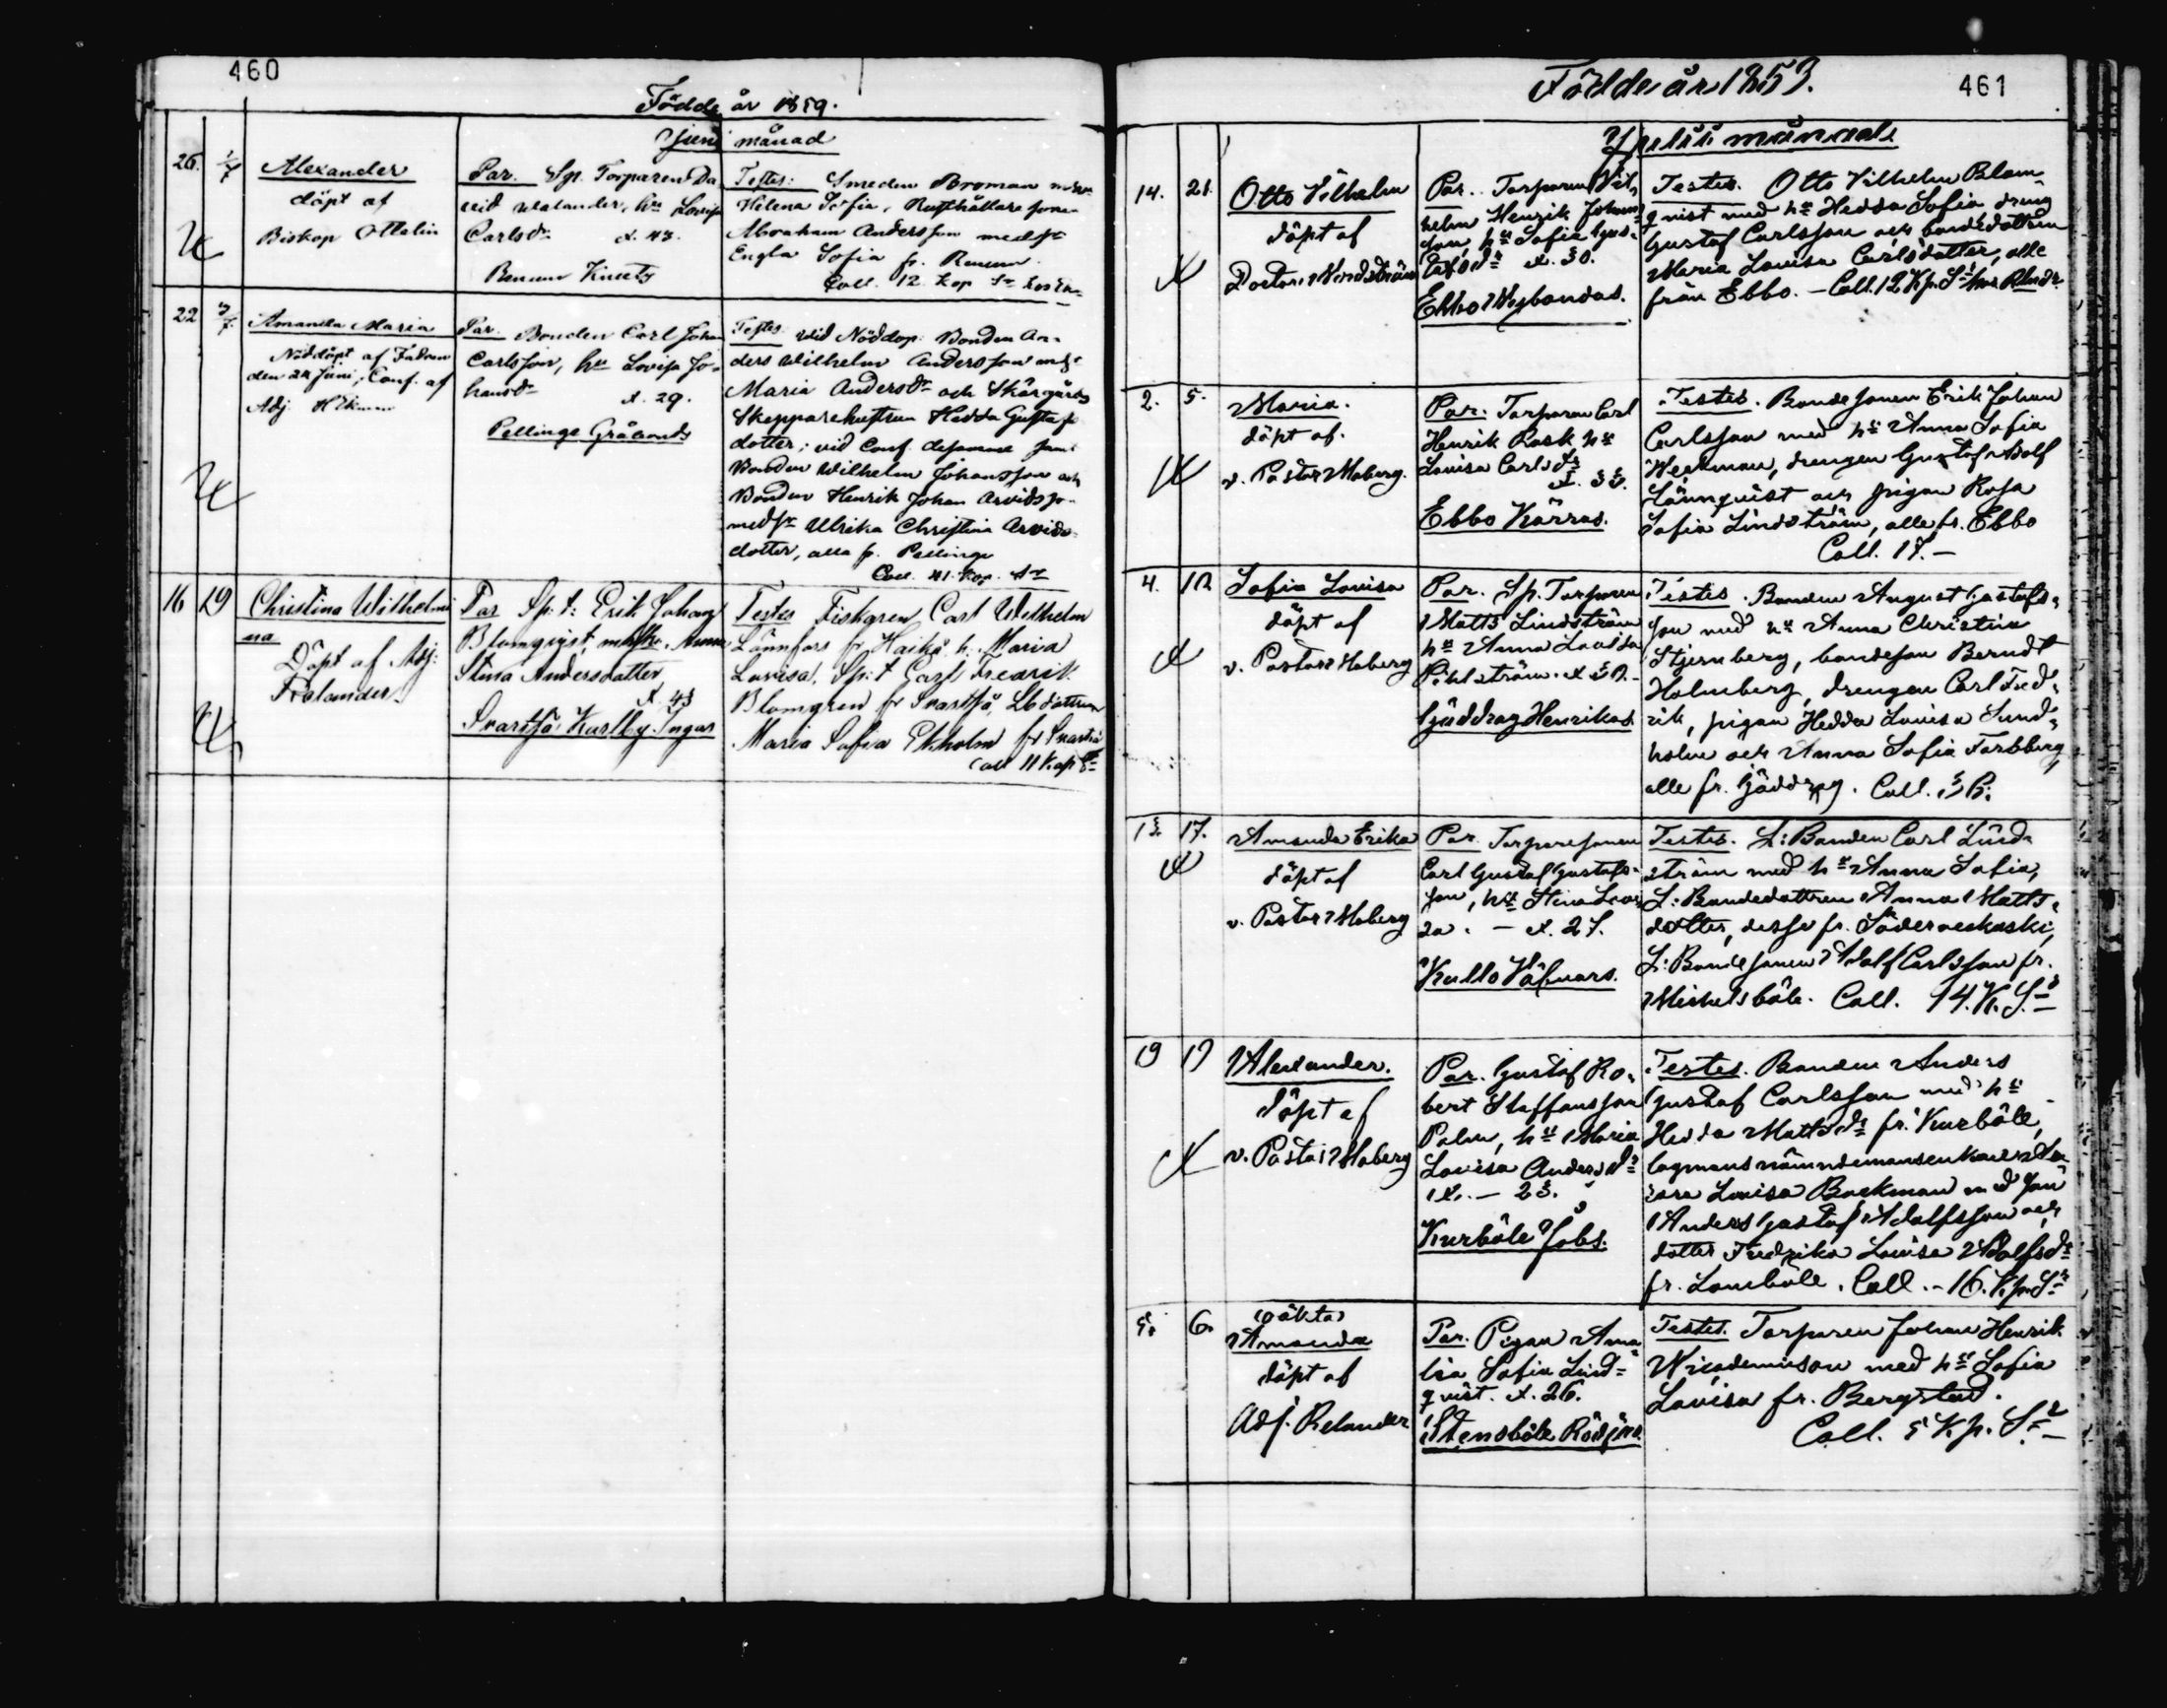 460
Födde år 1859.
Juni månad
26. 1/7
Alexander
döpt af
Biskop Ottelin
Par. Sp. Torparen Da
vid Walander, hu Lovisa
Carlsdr. æ. 43.
Renum Knuts
Testes: Smeden Broman m hu
Helena Sofia, Rusthållare sonen
Abraham Andersson med sr
Engla Sofia fr. Renum.
Coll. 12. Kop Sr
22 3/7.
Amanda Maria
Nöddöpt af Fadren
den 24 Juni; Conf. af
Adj.
Par. Bonden Carl Johan
Carlsson, hu Lovisa Jo-
hansdr æ. 29.
Pellinge Gråbonds
Testes vid Nöddop: Bonden An-
ders Wilhelm Andersson
Maria Andersdr och Skärgårds
Skepparehustrun Hedda Gustafs
dotter; vid Conf. desamme samt
Bonden Wilhelm Johansson och
Bonden Henrik Johan Arvidsso-
med sr Ulrika Christina Arvids-
dotter, alla fr. Pellinge
Coll. 41. Kop. Sr
16 19
Christina Wilhelmi
na
Döpt af Adj:
Relander
Par Sp: t: Erik Johan
Blomqvist, m hu. Anna
Stina Andersdotter
æ. 43
Svartså Karlby Ingas
Testes Fiskaren Carl Wilhelm
Lönnfors fr Haikå h: Maria
Lovisa, Sp: t Carl Fredrik
Blomgren fr Svartså, Lb dottren
Maria Sofia Ekholm fr Svartså
Coll 11 Kop Sr
Födde år 1853.
461
Julii månad.
14. 21.
Otto Vilhelm
döpt af
Doctor Windström
Par. Torparen Vil-
helm Henrik Johans-
son, hu Sofia Gus-
tafsdr æ. 30.
Ebbo Nybondas.
Testes. Otto Vilhelm Blom-
qvist med hu Hedda Sofia dreng
Gustaf Carlsson och bondedottren
Maria Lovisa Carlsdotter, alle
från Ebbo. – Coll. 12 Kp. Sr
2. 5.
Maria.
döpt af.
v. Pastor Moberg.
Par: Torparen Carl
Henrik Rask hu
Lovisa Carlsdr
æ. 33.
Ebbo Kärras.
Testes. Bondesonen Erik Johan
Carlsson med hu Anna Sofia
Weckman, drengen Gustaf Adolf
Lönnqvist och pigan Rosa
Sofia Lindström, alle fr. Ebbo
Coll. 17. –
4. 10
Sofia Lovisa
döpt af
v. Pastor Moberg
Par. Sp. Torparen
Matts Lindström
hu Anna Lovisa
Pihlström.
Gäddrag Henrikas.
Testes. Bonden August Gustafs-
son med hu Anna Christina
Stjernberg, bondeson Berndt
Holmberg, drengen Carl Fred-
rik, pigan Hedda Lovisa Sund-
holm och Anna Sofia Forsberg,
alle fr. Gäddrag. Coll.
13. 17.
Amanda Erika
döpt af
v. Pastor Moberg
Par. Torparesonen
Carl Gustaf Gustafs-
son, hu Stina Lovi-
sa. – æ. 27.
Kullo Häfvars.
Testes. L: Bonden Carl Lind-
ström med hu Anna Sofia,
L: Bondedottren Anna Matts-
dotter, desse fr. Söderveckoski,
L: Bondesonen Adolf Carlsson fr.
Mickelsböle. Coll. 14. K. Sr
19 19
Alexander.
döpt af
v. Pastor Moberg
Par. Gustaf Ro-
bert Staffansson
Palm, hu Maria
Lovisa Andersdr
æ. – 23.
Kurböle Jobs.
Testes. Bonden Anders
Gustaf Carlsson med hu
Hedda Mattsdr fr. Kurböle,
lagmansnämndemansenkan
Lovisa Backman med son
Anders Gustaf Adolfsson och
dotter Fredrika Lovisa Adolfsdr
fr. Lomböle. Coll. – 16. Kp. Sr
5. 6.
oäkta
Amanda
döpt af
Adj. Relander
Par. Pigan Ama-
lia Sofia Lind-
qvist. æ. 26.
Stensböle Rödjan.
Testes. Torparen Johan Henrik
Nicodemusson med hu Sofia
Lovisa fr. Bergstad.
Coll. 5 Kp. Sr